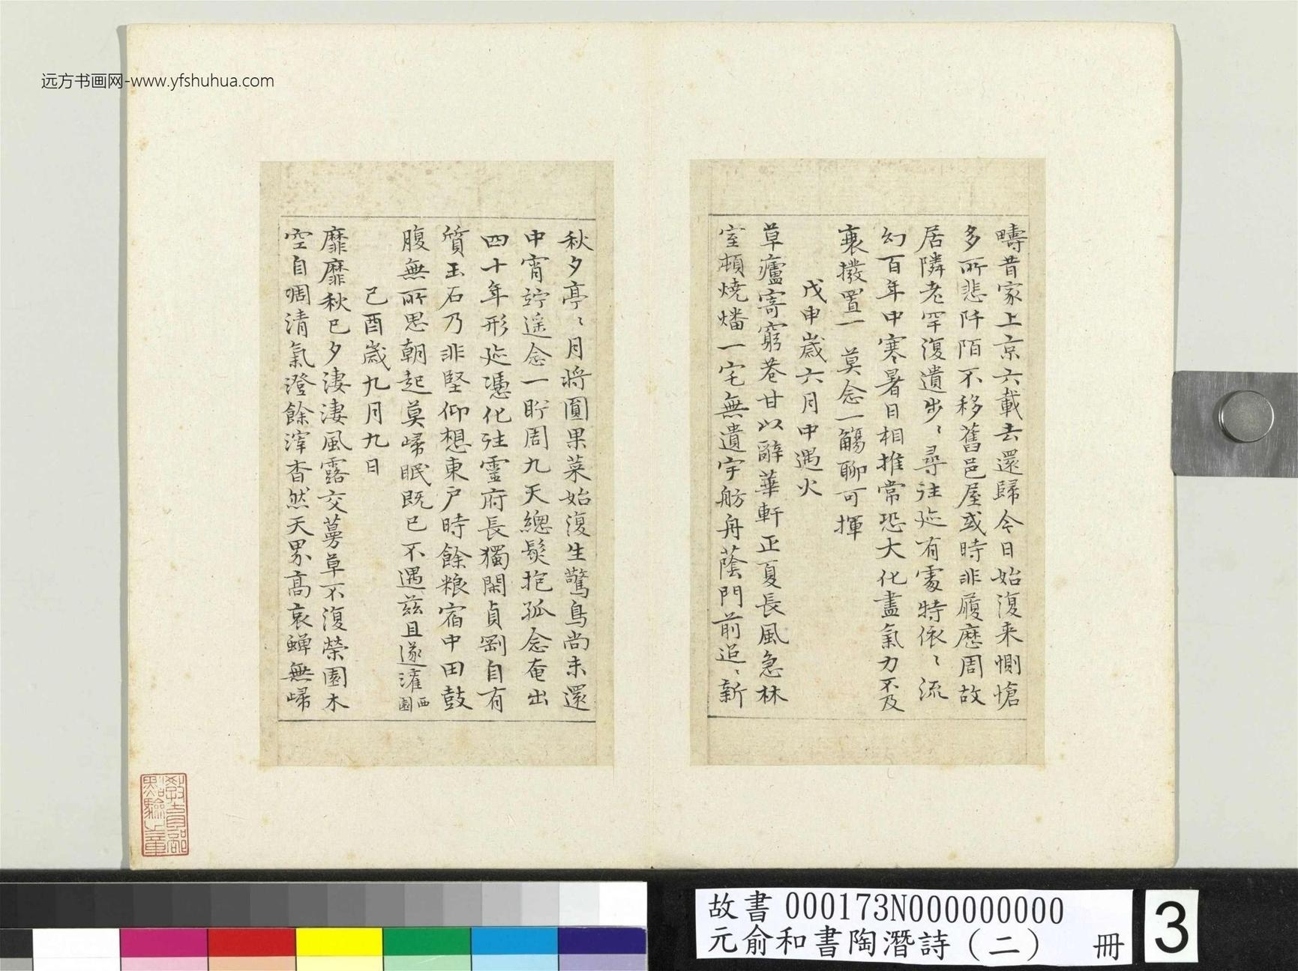 远方书画网-www.yfshuhua.com
疇昔家上京六載去還歸今日始復来惻愴
多所悲阡陌不移舊邑屋或時非履歷周故
居隣老罕復遺步〻尋往迹有處特依〻流
幻百年中寒暑日相推常恐大化盡氣力不及
衰撥置一莫念一觴聊可揮
戊申歲六月中遇火
草廬寄窮巷甘以辭華軒正夏長風急林
室頓燒燔一宅無遺宇舫舟蔭門前迢〻新
秋夕亭〻月將圓果菜始復生驚鳥尚未還
中宵竚遥念一盻周九天總髮抱孤念奄出
四十年形迹憑化往靈府長獨閑貞剛自有
質玉石乃非堅仰想東户時餘粮宿中田鼓
腹無所思朝起莫歸眠既已不遇兹且遂灌西園
己酉歲九月九日
靡靡秋已夕淒淒風露交蔓草不復榮園木
空自凋清氣澄餘滓杳然天界高哀蟬無歸
教育部
點驗之章
故書 000173N000000000
元俞和書陶潛詩（二） 冊
3